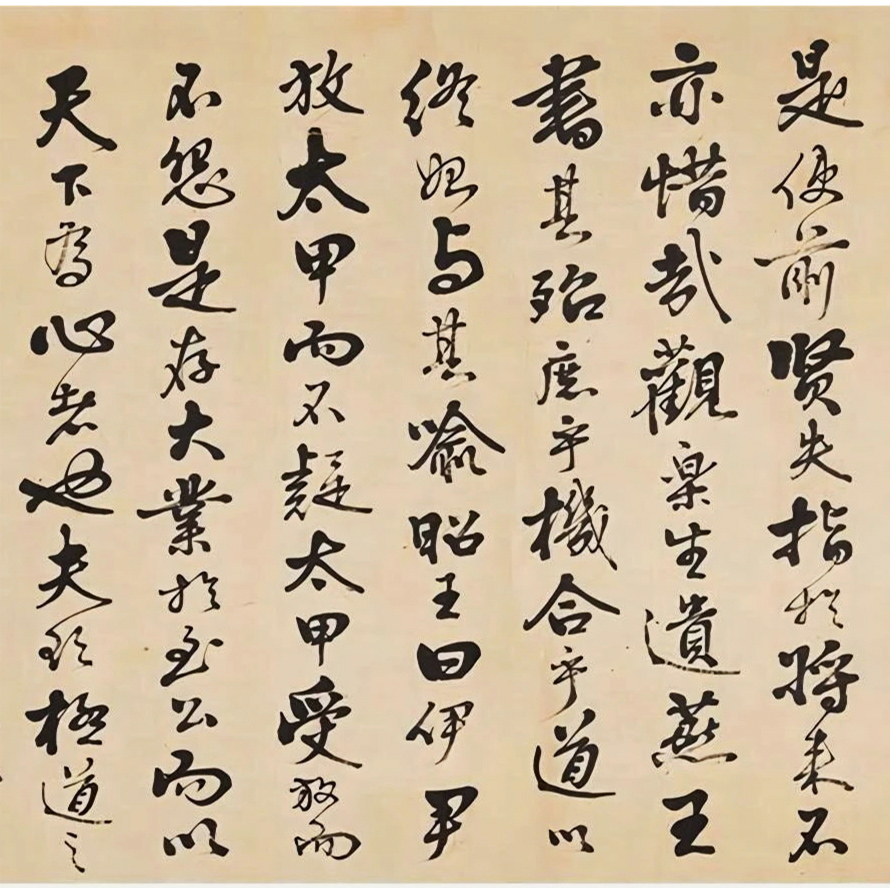 是使前賢失指於將来不
亦惜哉觀樂生遺燕王
書其殆庶乎機合乎道以
終始与其喻昭王曰伊尹
放太甲而不疑太甲受放而
不怨是存大業於至公而以
天下為心者也夫欲極道之